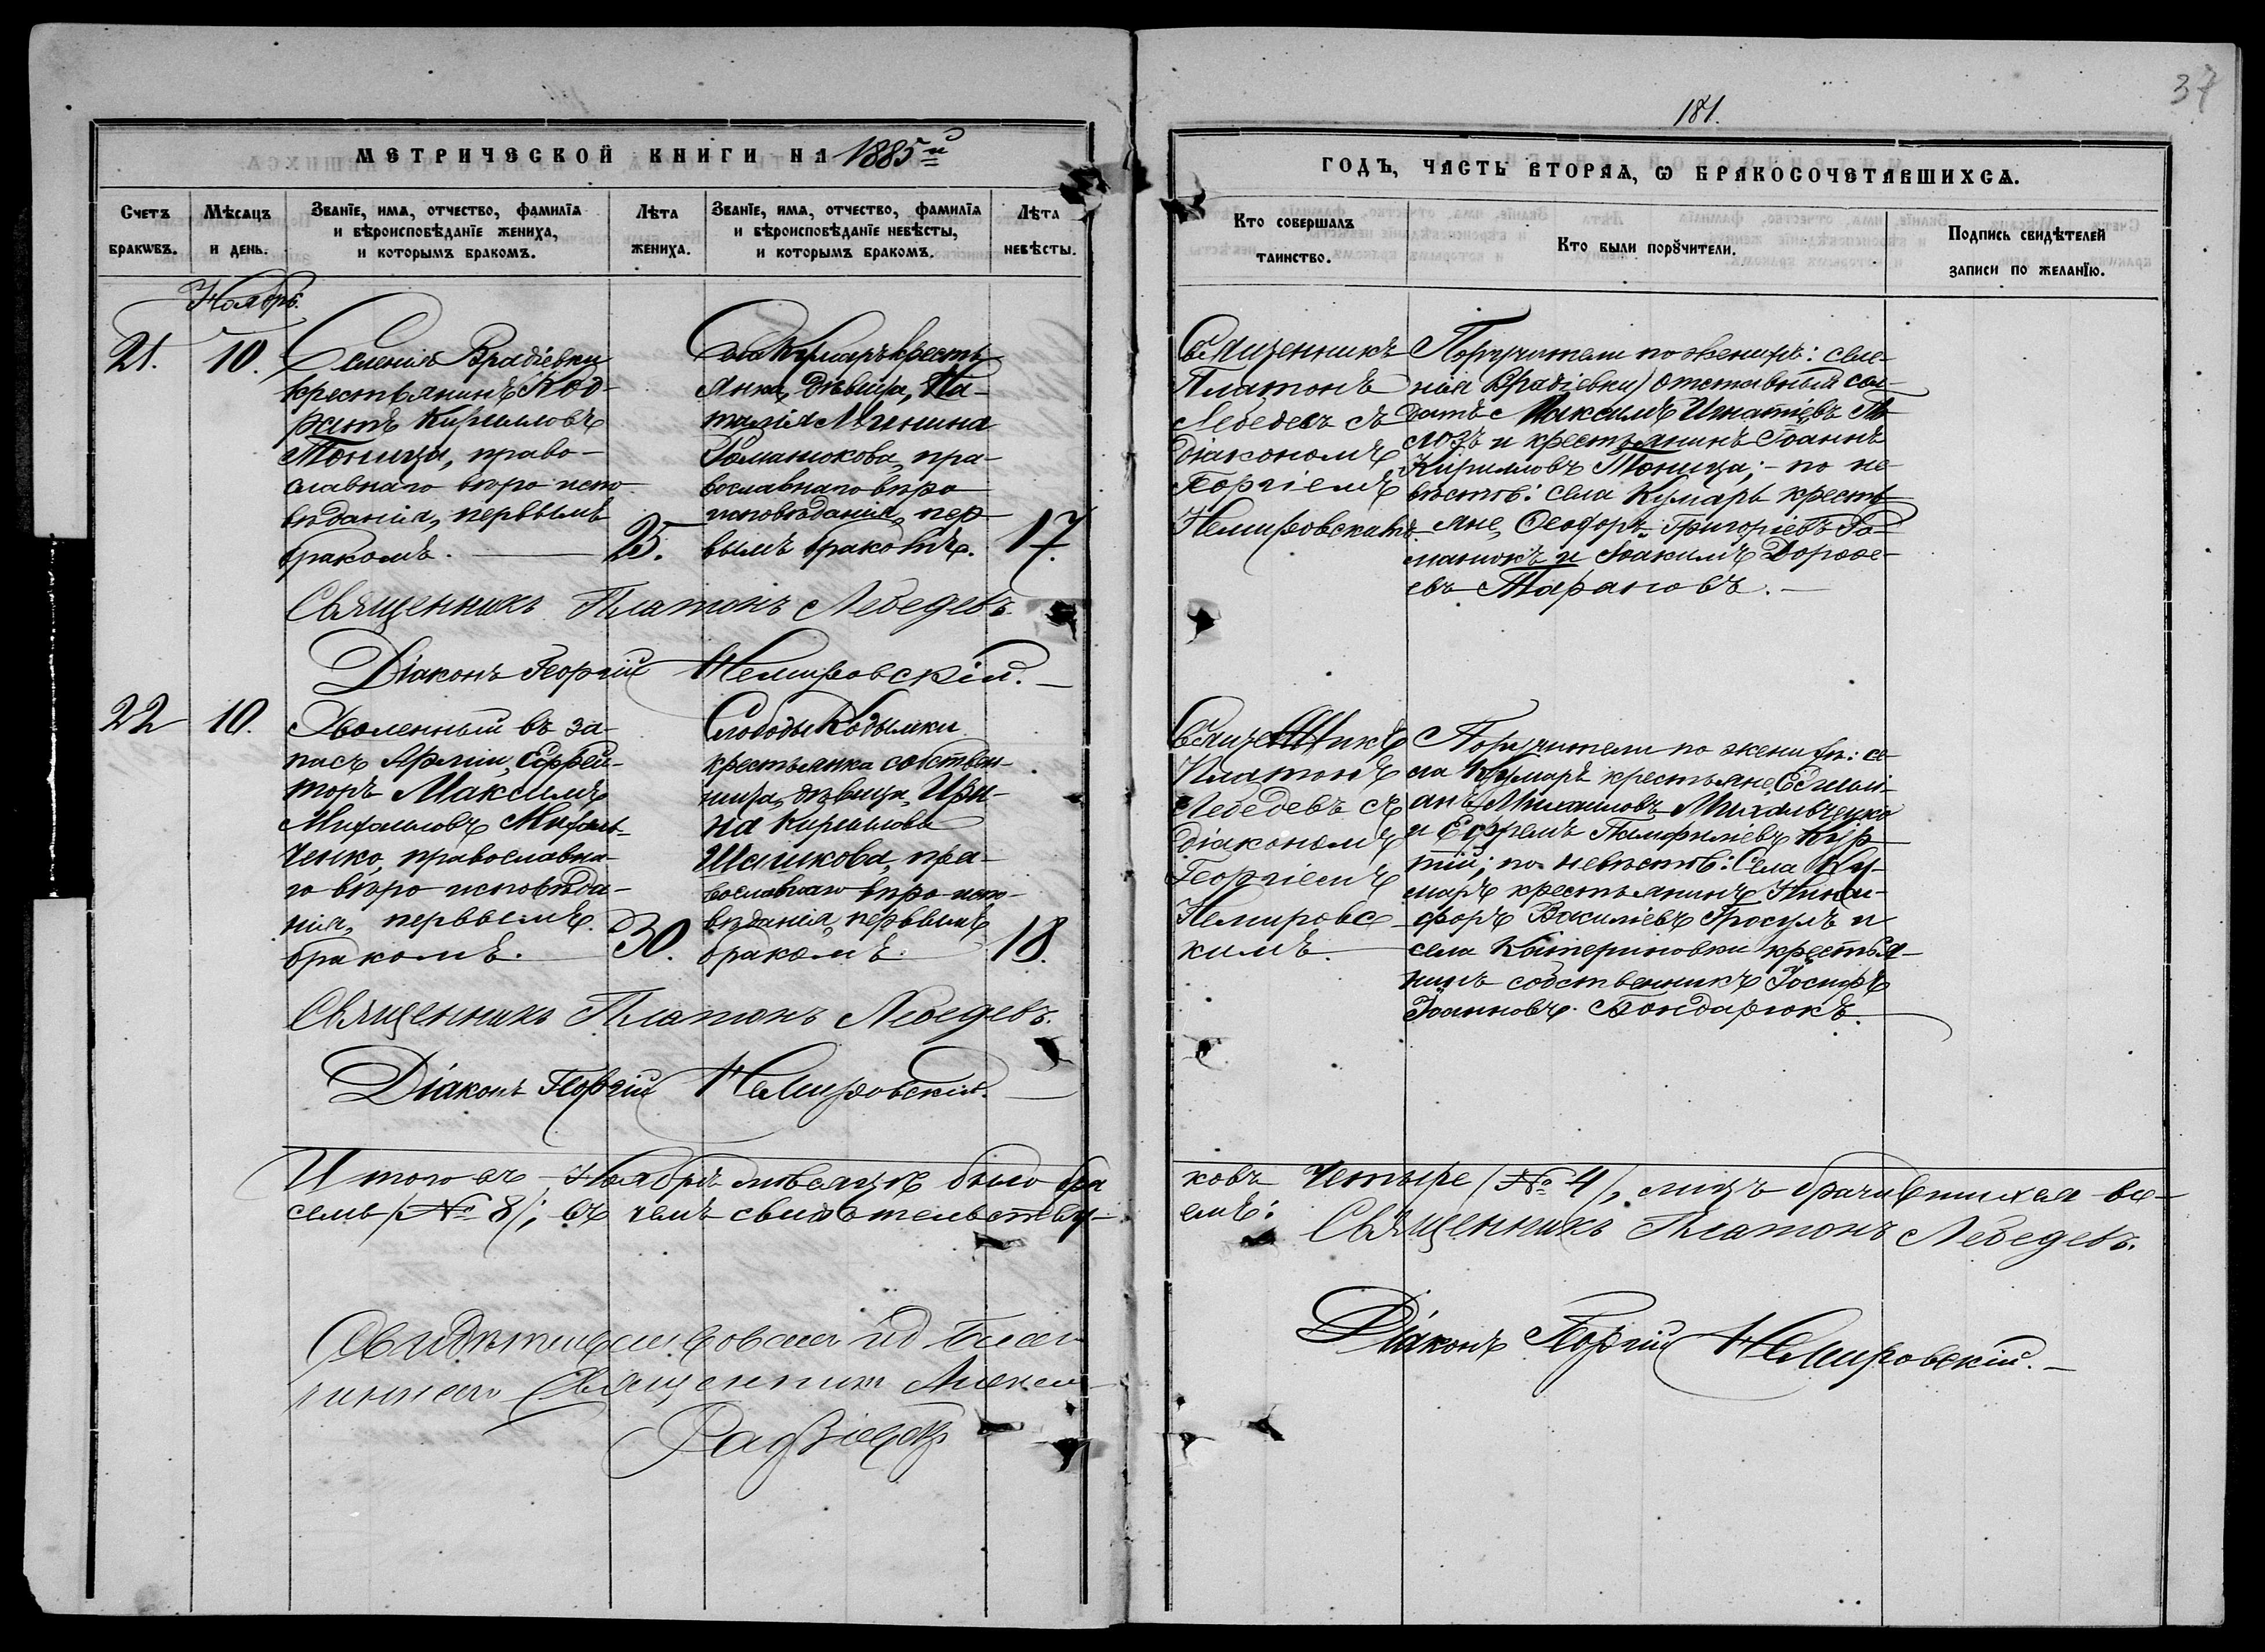 37
181.
МЕТРИЧЕСКОЙ КНИГИ НА 1885й
ГОДЪ, ЧАСТЬ ВТОРАЯ, Ѡ БРАКОСОЧЕТАВШИХСЯ.
Счетъ браковъ.
Мѣсяцъ и день.
Званїе, имя, отчество, фамилїя
и вѣроисповѣданїе жениха,
и которымъ бракомъ.
Лѣта жениха.
Званїе, имя, отчество, фамилїя
и вѣроисповѣданїе невѣсты,
и которымъ бракомъ.
Лѣта невѣсты.
Кто совершалъ
таинство.
Кто были порꙋчители.
Подпись свидѣтелей
записи по желанїю.
Ноябрь.
21.
10.
Селенія Врадіевки
крестьянинъ Код-
ратъ Кирилловъ
Тоница, право-
славнаго вѣро испо
вѣданія, первымъ
бракомъ.
25.
Села Кумаръ кресть
янка, дѣвица, На-
талія Минина
Романюкова, пра-
вославнаго вѣро
исповѣданія, пер-
вымъ бракомъ.
17.
Священникъ
Платонъ
Лебедевъ съ
діакономъ
Георгіемъ
Немировскимъ.
Поручители по женихѣ: селе-
нія Врадіевки, отставный сол-
датъ Максимъ Игнатіевъ
и крестьянинъ Іоаннъ
Кирилловъ Тоница; - по не-
вѣстѣ: села Кумаръ кресть
яне, Ѳеодоръ Григоріевъ Ро-
манюкъ и Іоакимъ Дороѳе-
евъ Тарановъ. —
Священникъ Платонъ Лебедевъ.
Діаконъ Георгій Немировскій. —
22
10.
Уволенный въ за-
пасъ Арміи, Ефрей-
торъ Максимъ
Михаиловъ Михаль-
ченко, православна-
го вѣро исповѣда-
нія, первымъ
бракомъ.
30.
Слободы Кодымки
крестьянка собствен-
ница, дѣвица, Ири-
на Кириллова
Шашкова, пра-
вославнаго вѣро испо-
вѣданія, первымъ
бракомъ.
18.
Священникъ
Платонъ
Лебедевъ съ
діакономъ
Георгіемъ
Немировс
кимъ.
Поручители по женихѣ: се-
ла Кумаръ крестьяне, Емили-
анъ Михаиловъ Михальченко
и Ефремъ Памфиліевъ
по невѣстѣ: Села Ку-
маръ крестьянинъ Ники-
форъ Василіевъ Гросулъ и
села Катериновки крестья-
нинъ собственникъ Іосифъ
Іоанновъ Бондарюкъ.
Священникъ Платонъ Лебедевъ.
Діаконъ Георгій Немировскій. —
Итого въ Ноябрѣ мѣсяцѣ было бра
ковъ четыре /№ 4/, лицъ брачившихся во-
семь /№ 8/; въ чемъ свидѣтельству-
емъ:
Священникъ Платонъ Лебедевъ.
Діаконъ Георгій Немировскій. —
Священникъ